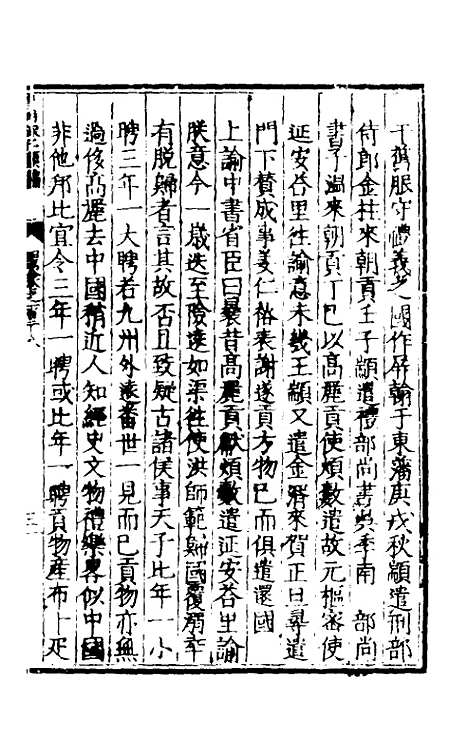 于舊服守禮義之國作屏翰于東藩庚戌秋顓遣刑部
侍郎金柱來朝貢壬子顓遣禮部尚書吳季南 部尚
書子溫來朝貢丁巳以高麗貢使煩數遣故元樞密使
延安荅里往諭意未幾王顓又遣金 來賀正旦尋遣
門下贊成事姜仁裕表謝遂貢方物已而俱遣還國
上諭中書省臣曰曩昔高麗貢獻煩數遣延安荅里諭
朕意今一歲迭至險遠如渠往使洪師範歸國覆溺幸
有脫歸者言其故否且致疑古諸侯事天子比年一小
聘三年一大聘若九州外遠蕃世一見而已貢物亦無
過侈高麗去中國稍近人知經史文物禮樂畧似中國
非他邦比宜令三年一聘或比年一聘貢物產布十疋